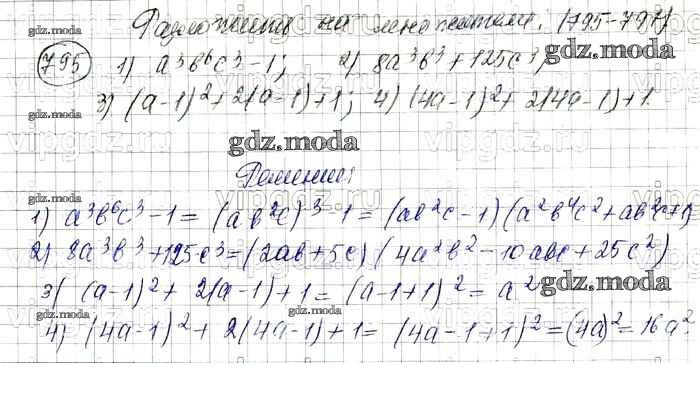 Разложить на множители. (795-797)
795 1) a³b⁶c³-1; 2) 8a³b³+125c³;
3) (a-1)²+2(a-1)+1; 4) (4a-1)²+2(4a-1)+1.
Решение:
1) a³b⁶c³-1=(ab²c)³-1=(ab²c-1)(a²b⁴c²+ab²c+1)
2) 8a³b³+125c³=(2ab+5c)(4a²b²-10abc+25c²)
3) (a-1)²+2(a-1)+1=(a-1+1)²=a²
4) (4a-1)²+2(4a-1)+1=(4a-1+1)²=(4a)²=16a².
gdz.moda
vipgdz.ru